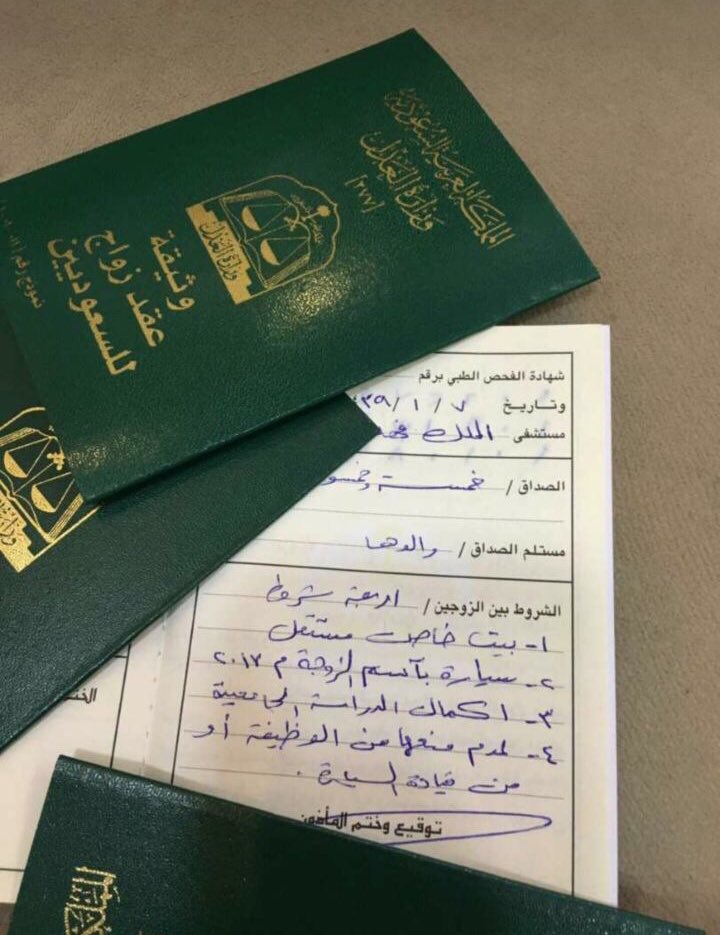 المملكة العربية السعودية
وزارة العدل
[٢٧٧]
وزارة العدل
وثيقة
عقد زواج
للسعوديين
نموذج رقم
شهادة الفحص الطبي برقم
وتاريخ ٧ / ١ / ٣٩
مستشفى الملك فهد
الصداق / خمسة وخمسو
مستلم الصداق / والدها
الشروط بين الزوجين / اربعة شروط
١- بيت خاص مستقل
٢- سيارة بأسم الزوجة م ٢٠١٧
٣- اكمال الدراسة الجامعية
٤- لعدم منعها من الوظيفة أو
من قيادة السيارة .
توقيع وختم المأذون